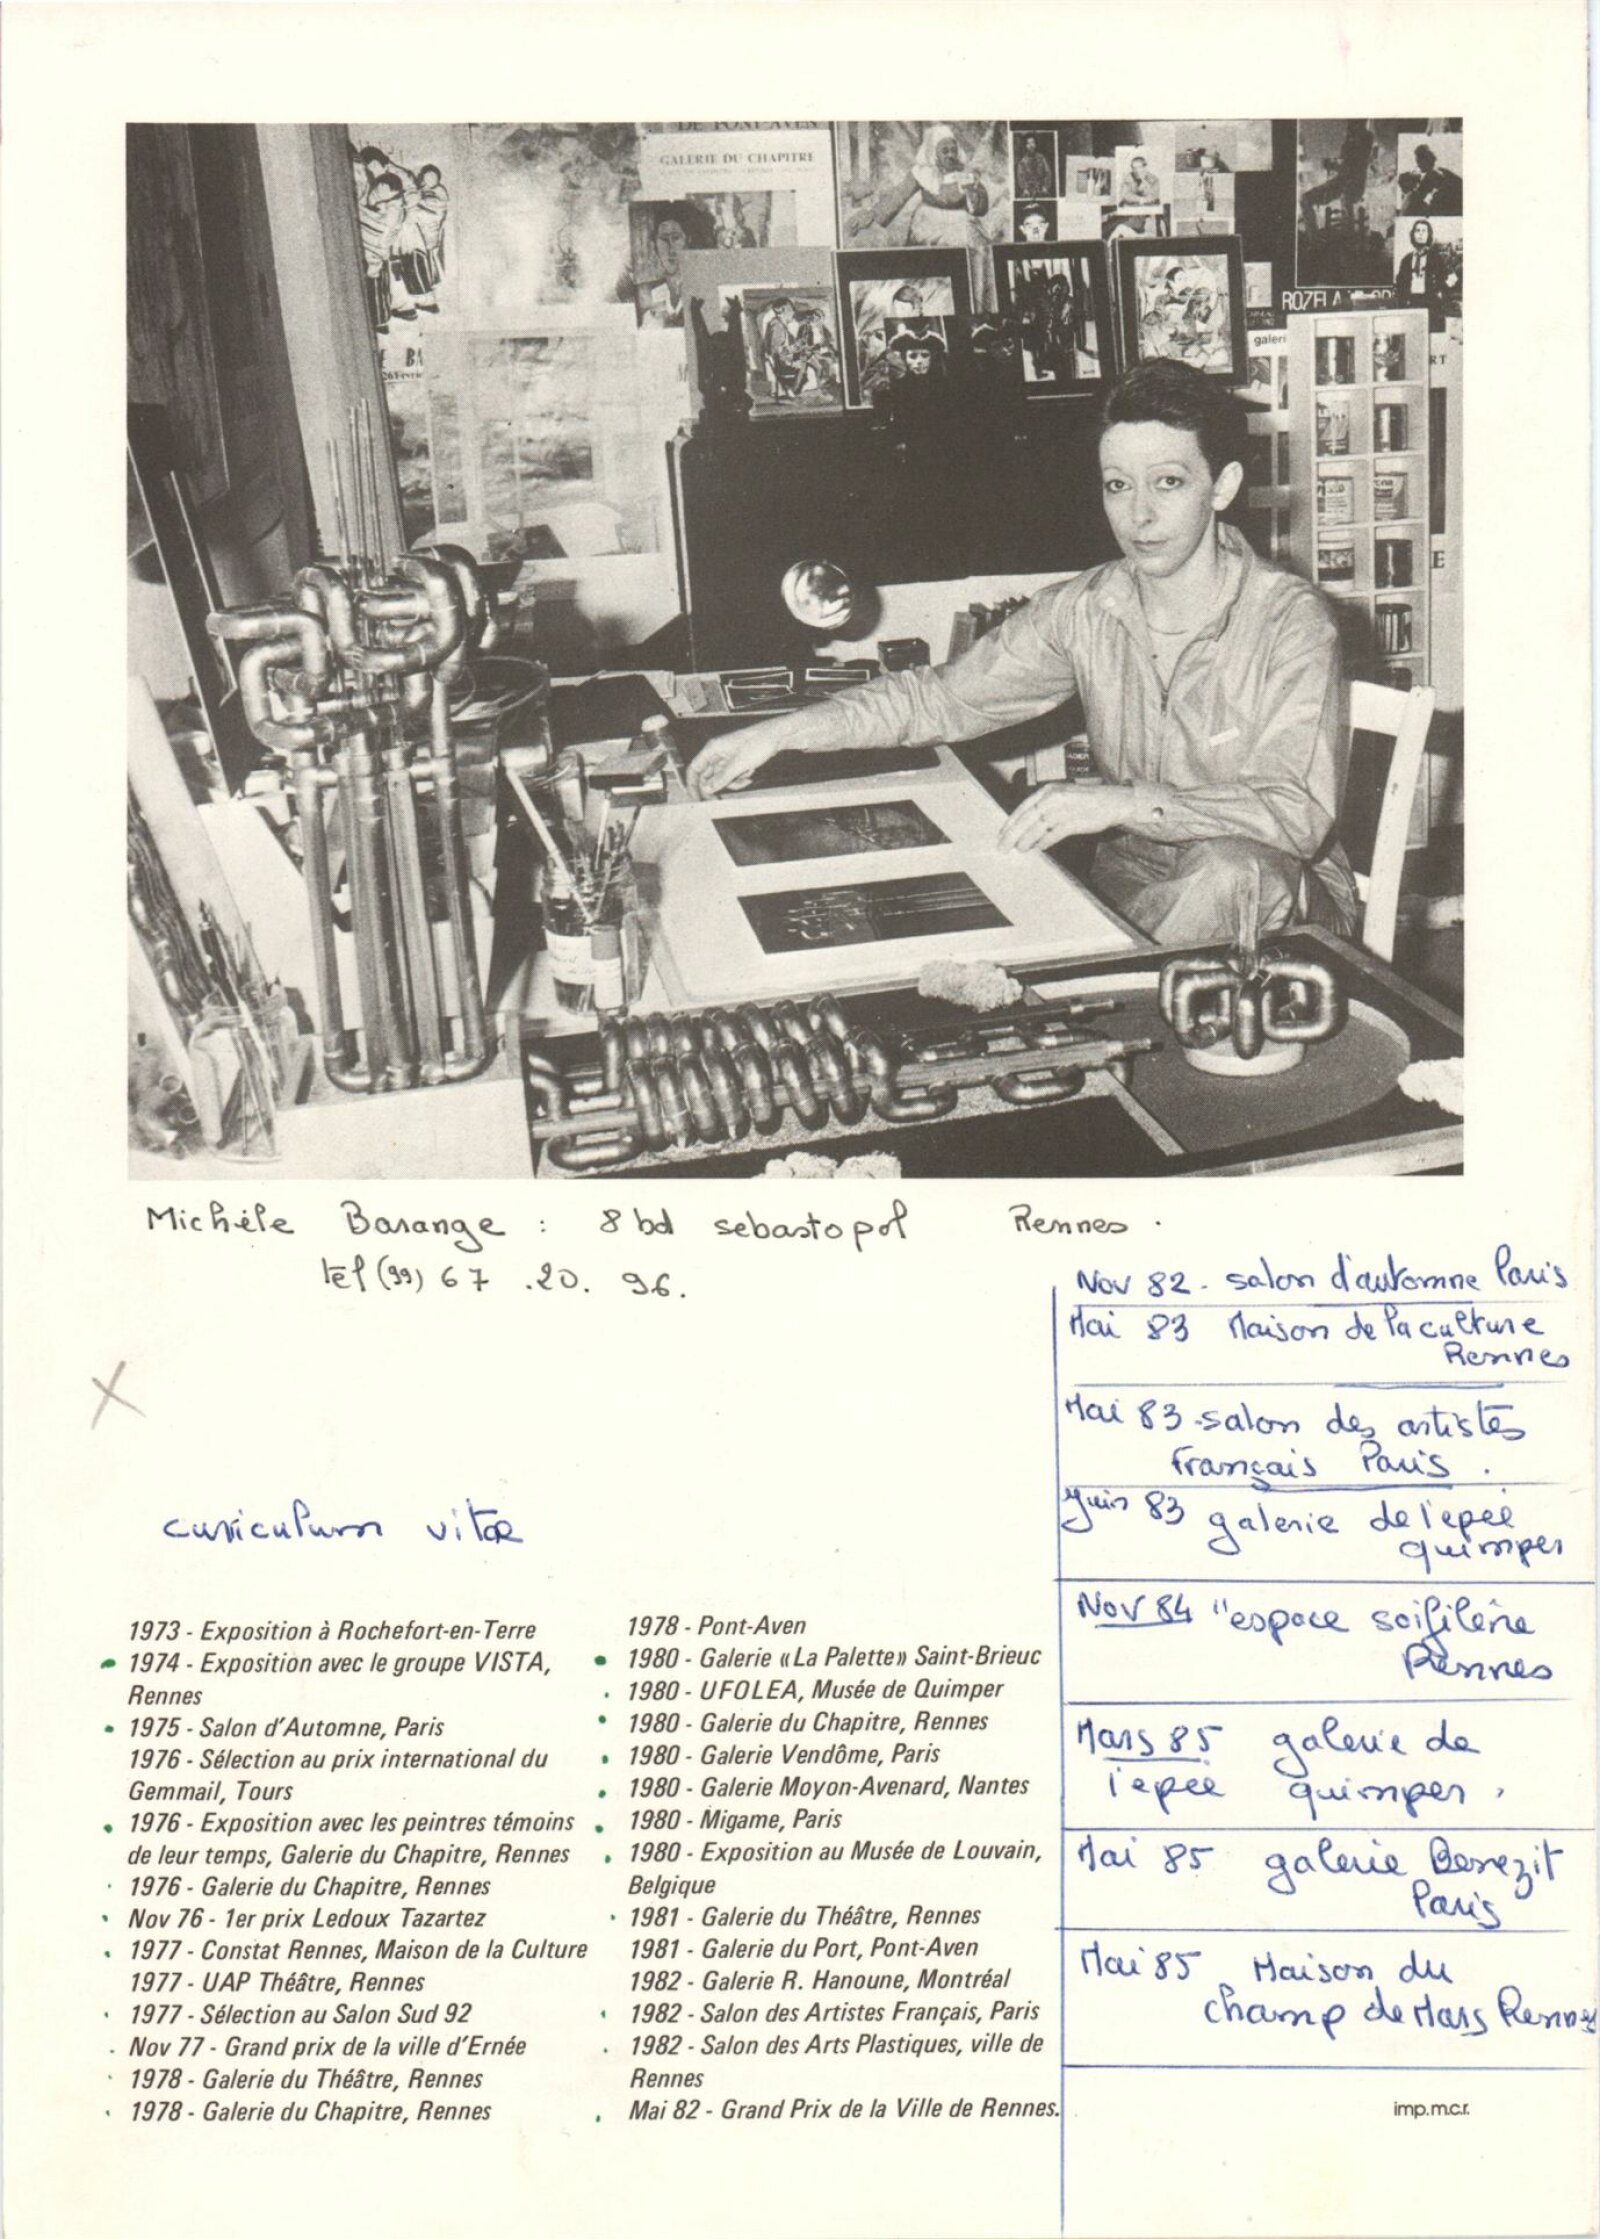 DE PONT-AVEN
GALERIE DU CHAPITRE
galeri
Michèle Barange : 8 bd sebastopol Rennes.
tel (99) 67.20.96.
Nov 82 - salon d'automne Paris
Mai 83 Maison de la culture
Rennes
Mai 83 - salon des artistes
Français Paris.
Juin 83 galerie de l'epée
quimper
Nov 84 "espace
Rennes
Mars 85 galerie de
l'epée quimper.
Mai 85 galerie Benezit
Paris
Mai 85 Maison du
champ de Mars Rennes
curiculum vitae
1973 - Exposition à Rochefort-en-Terre
1974 - Exposition avec le groupe VISTA,
Rennes
1975 - Salon d'Automne, Paris
1976 - Sélection au prix international du
Gemmail, Tours
1976 - Exposition avec les peintres témoins
de leur temps, Galerie du Chapitre, Rennes
1976 - Galerie du Chapitre, Rennes
Nov 76 - 1er prix Ledoux Tazartez
1977 - Constat Rennes, Maison de la Culture
1977 - UAP Théâtre, Rennes
1977 - Sélection au Salon Sud 92
Nov 77 - Grand prix de la ville d'Ernée
1978 - Galerie du Théâtre, Rennes
1978 - Galerie du Chapitre, Rennes
1978 - Pont-Aven
1980 - Galerie «La Palette» Saint-Brieuc
1980 - UFOLEA, Musée de Quimper
1980 - Galerie du Chapitre, Rennes
1980 - Galerie Vendôme, Paris
1980 - Galerie Moyon-Avenard, Nantes
1980 - Migame, Paris
1980 - Exposition au Musée de Louvain,
Belgique
1981 - Galerie du Théâtre, Rennes
1981 - Galerie du Port, Pont-Aven
1982 - Galerie R. Hanoune, Montréal
1982 - Salon des Artistes Français, Paris
1982 - Salon des Arts Plastiques, ville de
Rennes
Mai 82 - Grand Prix de la Ville de Rennes.
imp.m.c.r.